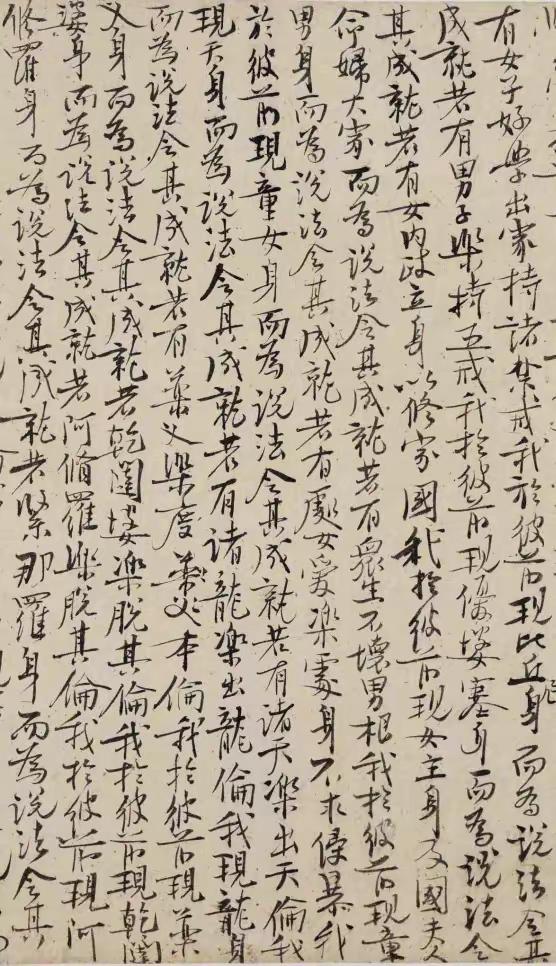 有女子好學出家持諸禁戒我於彼前現比丘尼身而為說法令其
成就若有男子樂持五戒我於彼前現優婆塞身而為說法令
其成就若有女內政立身以修家國我於彼前現女主身及國夫人
命婦大家而為說法令其成就若有眾生不壞男根我於彼前現童
男身而為說法令其成就若有處女愛樂處身不求侵暴我
於彼前現童女身而為說法令其成就若有諸天樂出天倫我
現天身而為說法令其成就若有諸龍樂出龍倫我現龍身
而為說法令其成就若有藥叉樂度藥叉本倫我於彼前現藥
叉身而為說法令其成就若乾闥婆樂脫其倫我於彼前現乾闥
婆身而為說法令其成就若阿脩羅樂脫其倫我於彼前現阿
修羅身而為說法令其成就若緊那羅身而為說法令其